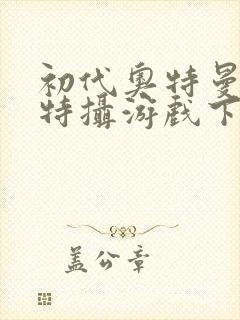 初代奥特曼
特攝游戏下
盖公章